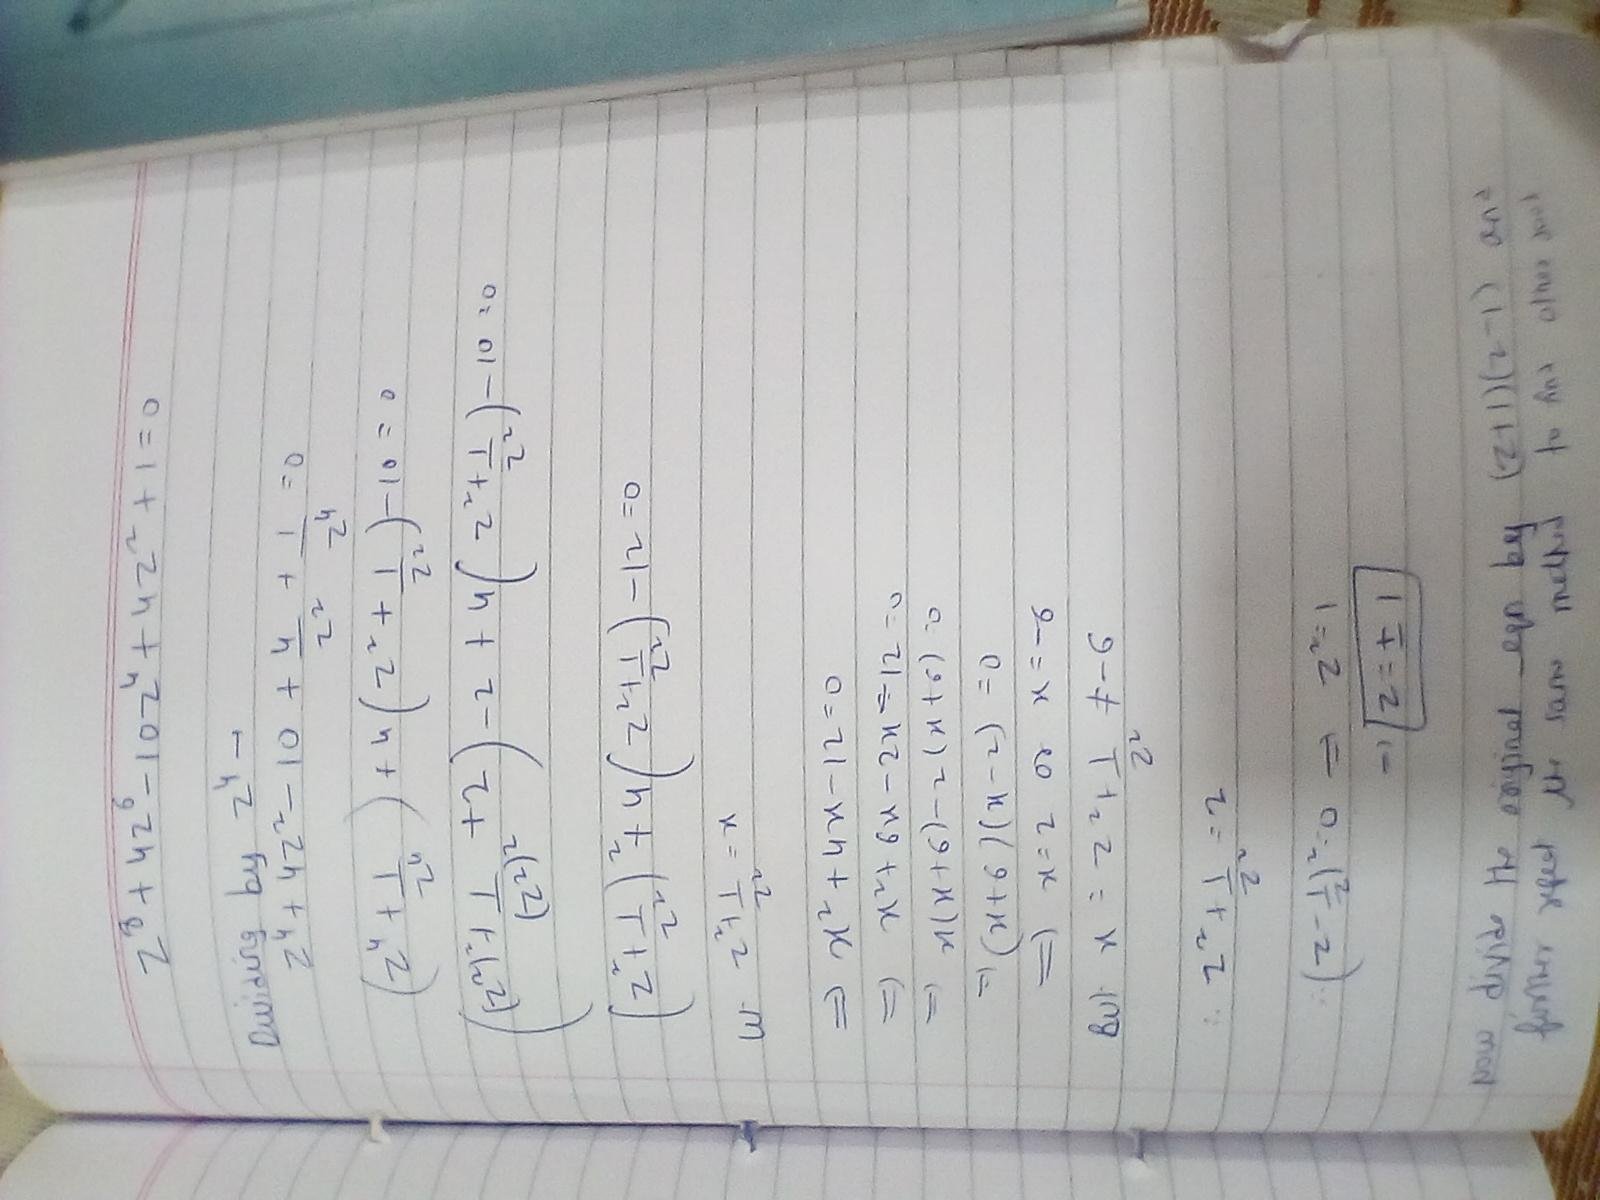 z⁸ + 4z⁶ - 10z⁴ + 4z² + 1 = 0
Dividing by z⁴ →
z⁴ + 4z² - 10 + 4/z² + 1/z⁴ = 0
(z⁴ + 1/z⁴) + 4(z² + 1/z²) - 10 = 0
((z²)² + 1/(z²)² + 2) - 2 + 4(z² + 1/z²) - 10 = 0
(z² + 1/z²)² + 4(z² + 1/z²) - 12 = 0
z² + 1/z² = x
⇒ x² + 4x - 12 = 0
⇒ x² + 6x - 2x - 12 = 0
= x(x+6) - 2(x+6) = 0
= (x+6)(x-2) = 0
⇒ x = 2 or x = -6
But x = z² + 1/z² ≠ -6
∴ z² + 1/z² = 2
∴ (z - 1/z)² = 0 ⇒ z² = 1
= z = ± 1
Now divide the original eqn by (z+1)(z-1) and
further repeat the same method to find other roots